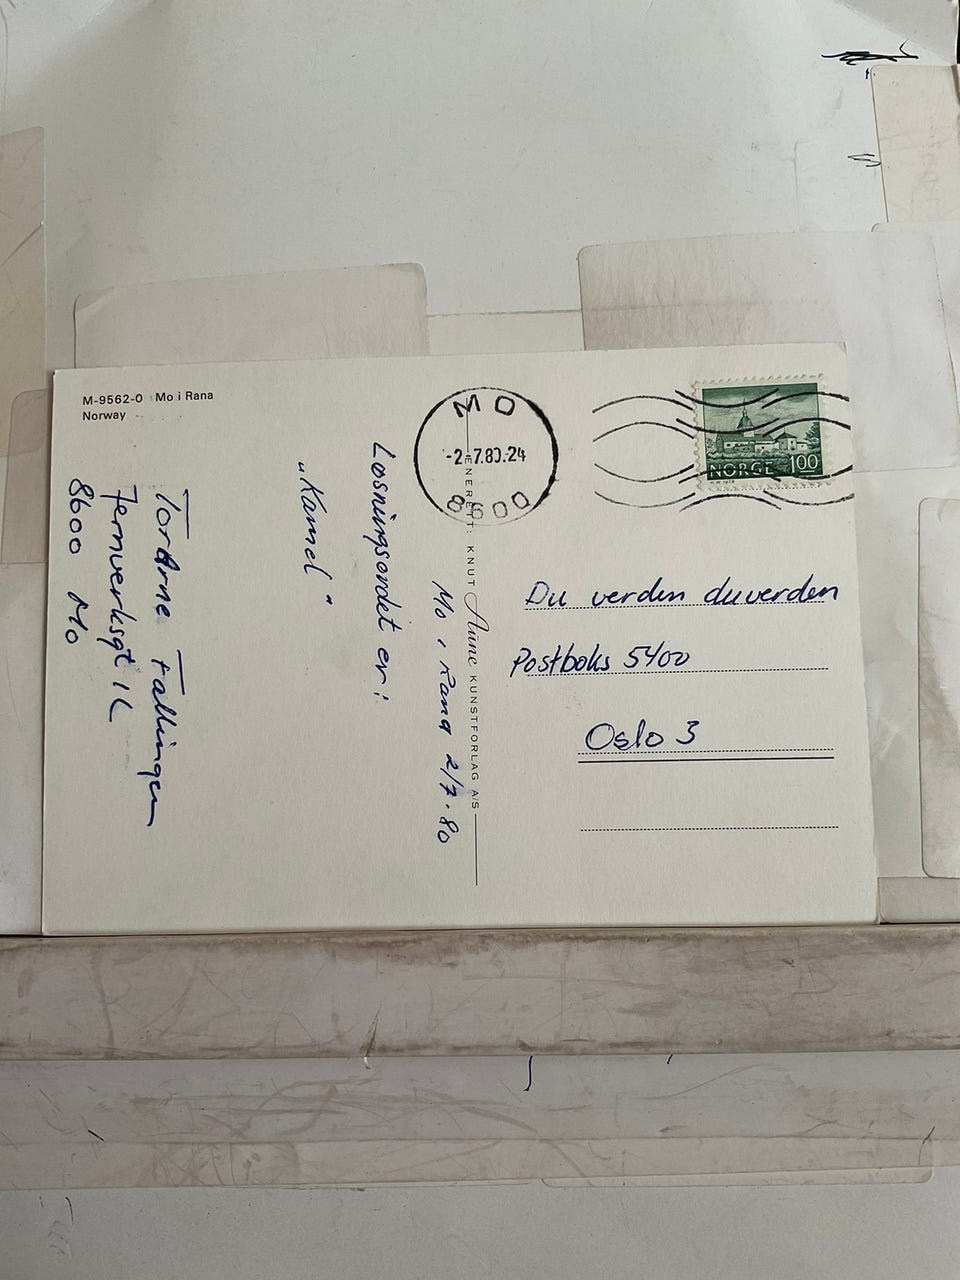 M-9562-0 Mo i Rana
Norway
MO
-2.7.80.24
8600
NORGE 100
ENERETT: KNUT Aune KUNSTFORLAG A/S
Mo i Rana 2/7-80
Løsningsordet er:
"Kamel"
Tor Arne Fallingen
Jernverksgt
8600 Mo
Du verden du verden
Postboks 5400
Oslo 3